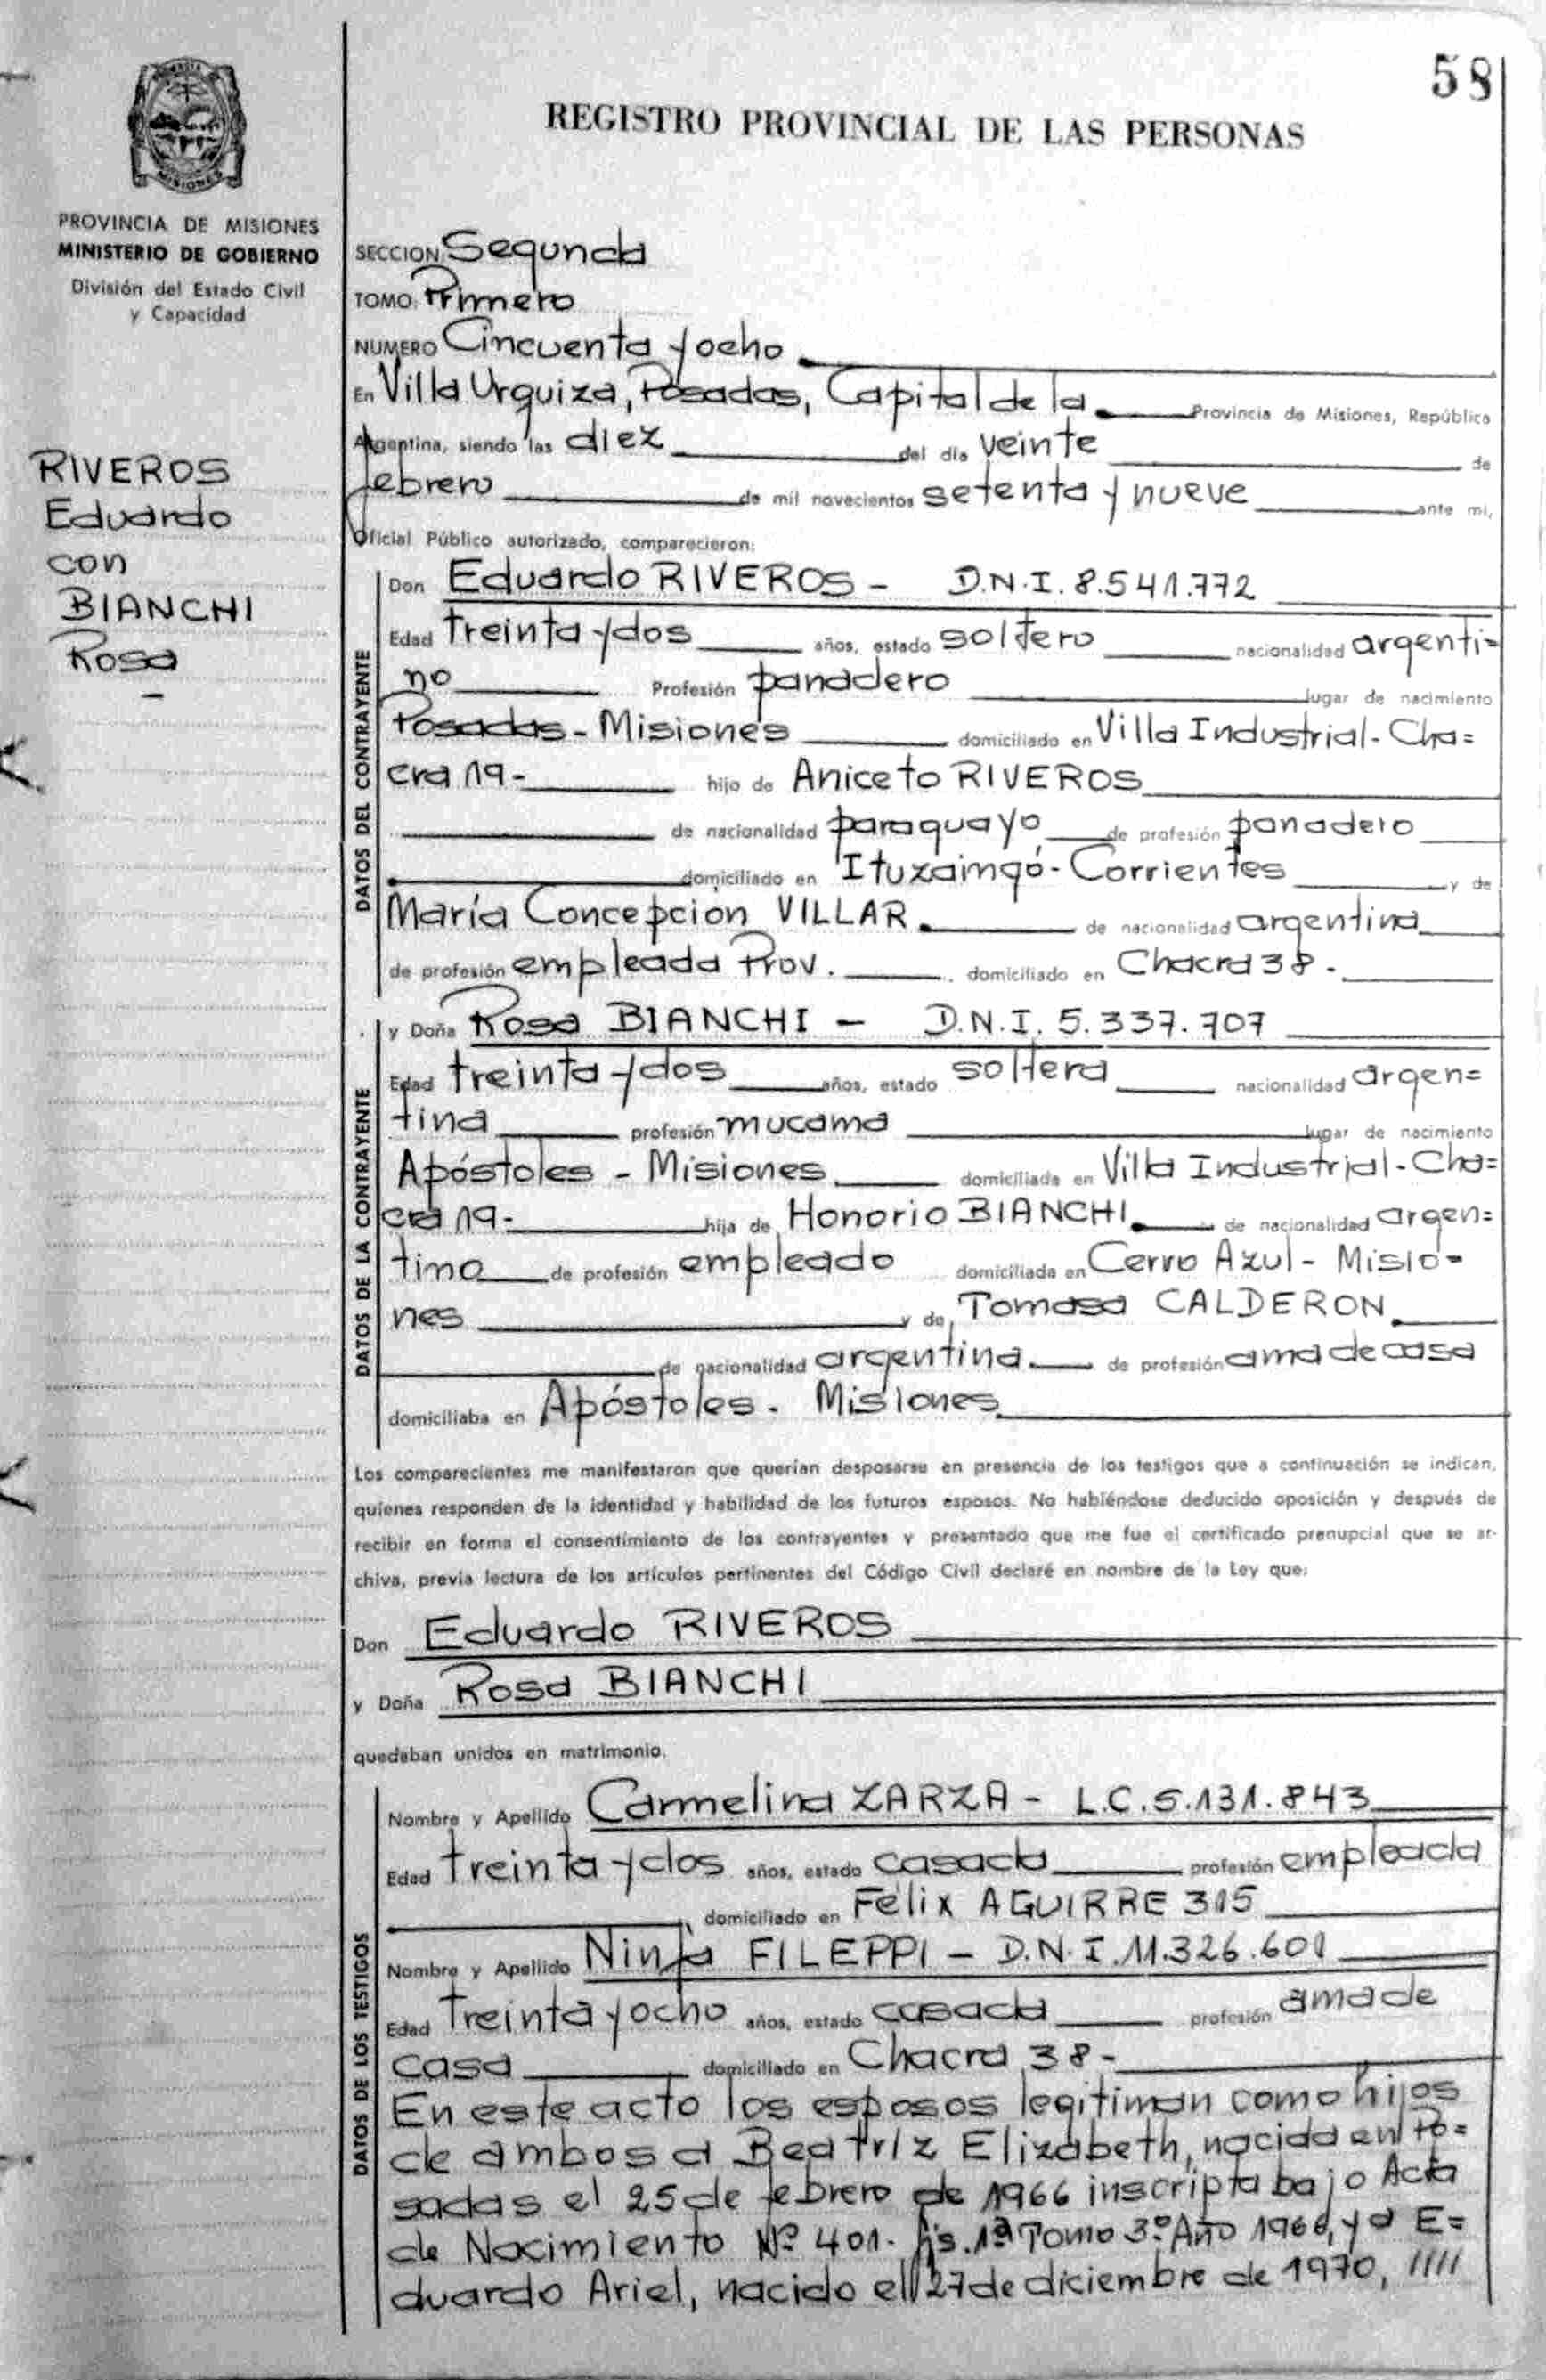 58
REGISTRO PROVINCIAL DE LAS PERSONAS
MISIONES
PROVINCIA DE MISIONES
MINISTERIO DE GOBIERNO
División del Estado Civil
y Capacidad
RIVEROS
Eduardo
con
BIANCHI
Rosa
-
SECCION Segunda
TOMO: Primero
NUMERO Cincuenta y ocho
En Villa Urquiza, Posadas, Capital de la Provincia de Misiones, República
Argentina, siendo las diez del día veinte de
febrero de mil novecientos setenta y nueve ante mi,
Oficial Público autorizado, comparecieron:
DATOS DEL CONTRAYENTE
Don Eduardo RIVEROS - D.N.I. 8.541.772
Edad treinta y dos años, estado soltero nacionalidad argenti=
no Profesión panadero lugar de nacimiento
Posadas - Misiones domiciliado en Villa Industrial - Cha=
cra 19- hijo de Aniceto RIVEROS
de nacionalidad paraguayo de profesión panadero
domiciliado en Ituzaingó - Corrientes y de
María Concepción VILLAR. de nacionalidad argentina
de profesión empleada Prov. domiciliado en Chacra 38.
DATOS DE LA CONTRAYENTE
y Doña Rosa BIANCHI - D.N.I. 5.337.707
Edad treinta y dos años, estado soltera nacionalidad argen=
tina profesión mucama lugar de nacimiento
Apóstoles - Misiones domiciliada en Villa Industrial - Cha=
cra 19- hija de Honorio BIANCHI de nacionalidad argen=
tino de profesión empleado domiciliada en Cerro Azul - Misio=
nes y de Tomasa CALDERON
de nacionalidad argentina de profesión ama de casa
domiciliaba en Apóstoles. Misiones
Los comparecientes me manifestaron que querían desposarse en presencia de los testigos que a continuación se indican,
quienes responden de la identidad y habilidad de los futuros esposos. No habiéndose deducido oposición y después de
recibir en forma el consentimiento de los contrayentes y presentado que me fue el certificado prenupcial que se ar-
chiva, previa lectura de los artículos pertinentes del Código Civil declaré en nombre de la Ley que:
Don Eduardo RIVEROS
y Doña Rosa BIANCHI
quedaban unidos en matrimonio.
DATOS DE LOS TESTIGOS
Nombre y Apellido Carmelina ZARZA - L.C. 5.131.843
Edad treinta y dos años, estado casada profesión empleada
domiciliado en Félix AGUIRRE 315
Nombre y Apellido Ninfa FILEPPI - D.N.I. 11.326.601
Edad treinta y ocho años, estado casada profesión ama de
casa domiciliado en Chacra 38-
En este acto los esposos legitiman como hijos
de ambos a Beatriz Elizabeth, nacida en Po=
sadas el 25 de febrero de 1966 inscripta bajo Acta
de Nacimiento Nº 401. 1ª Tomo 3º Año 1966, y a E=
duardo Ariel, nacido el 27 de diciembre de 1970, ////